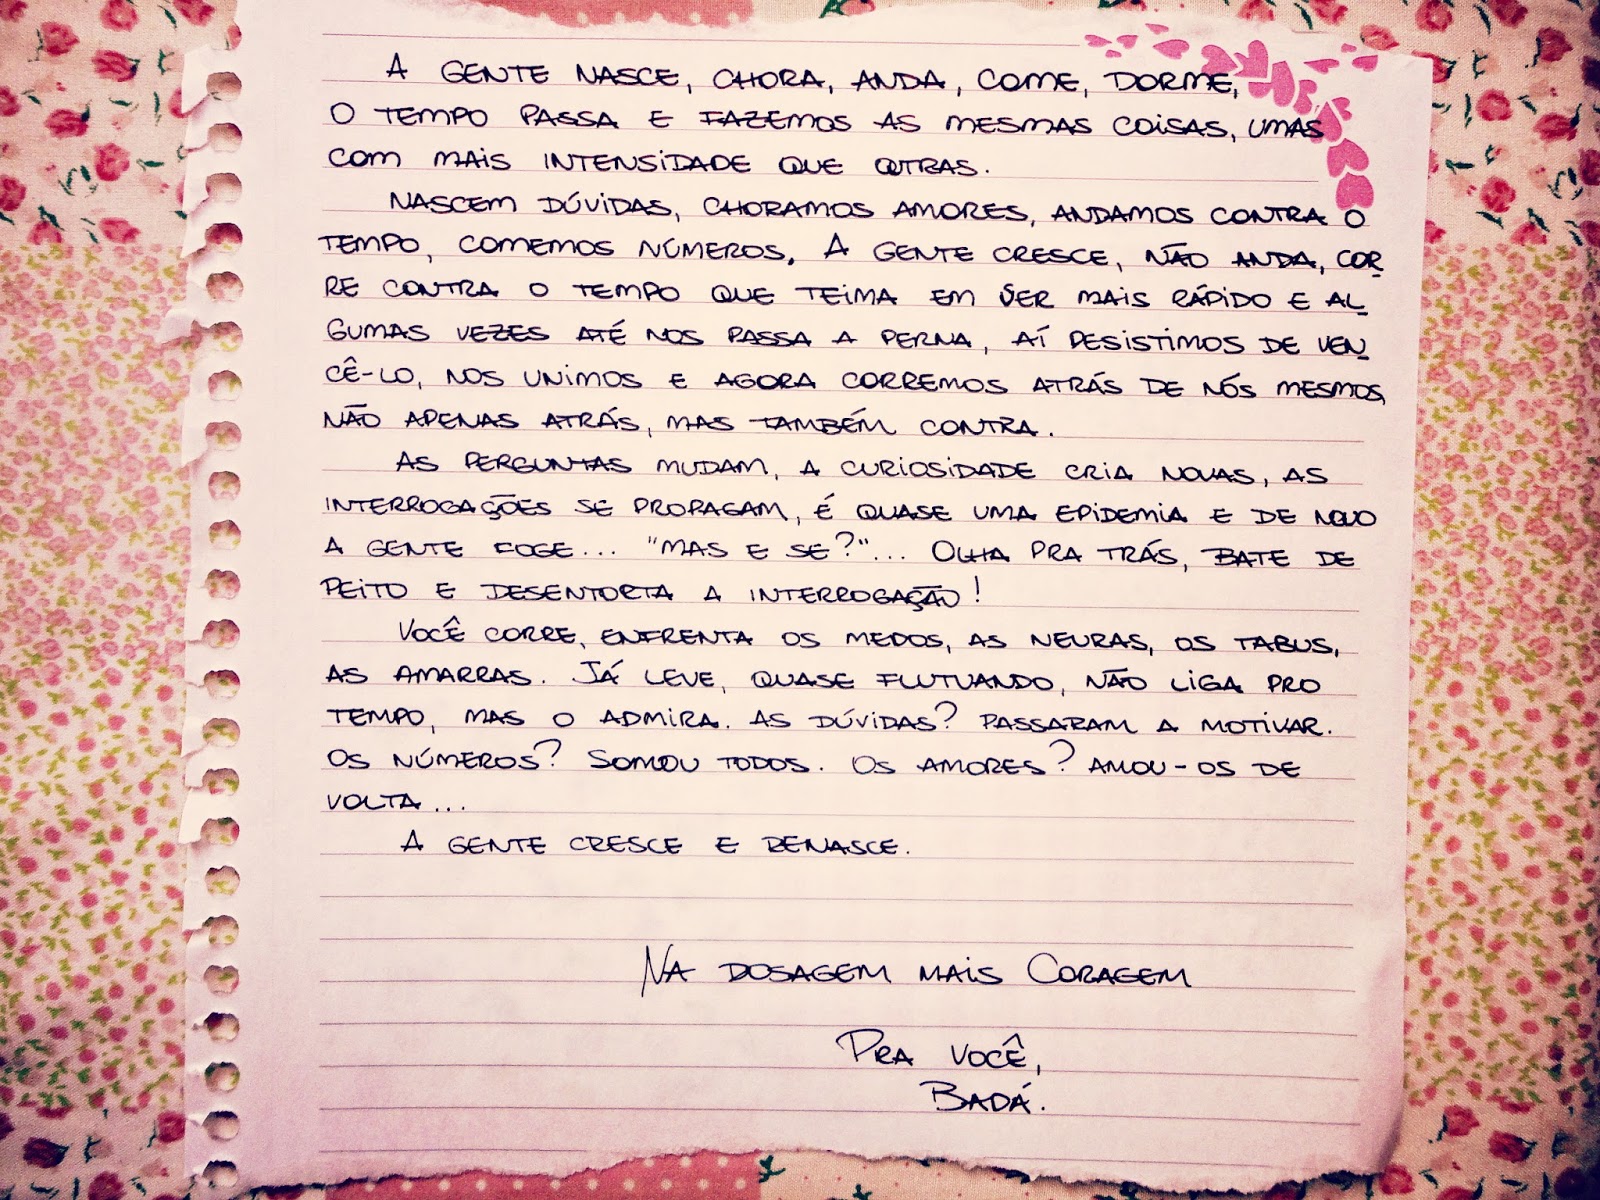 A GENTE NASCE, CHORA, ANDA, COME, DORME,
O TEMPO PASSA E FAZEMOS AS MESMAS COISAS, UMAS
COM MAIS INTENSIDADE QUE OUTRAS.
NASCEM DÚVIDAS, CHORAMOS AMORES, ANDAMOS CONTRA O
TEMPO, COMEMOS NÚMEROS. A GENTE CRESCE, NÃO ANDA, COR
RE CONTRA O TEMPO QUE TEIMA EM SER MAIS RÁPIDO E AL
GUMAS VEZES ATÉ NOS PASSA A PERNA, AÍ DESISTIMOS DE VEN
CÊ-LO, NOS UNIMOS E AGORA CORREMOS ATRÁS DE NÓS MESMOS,
NÃO APENAS ATRÁS, MAS TAMBÉM CONTRA.
AS PERGUNTAS MUDAM, A CURIOSIDADE CRIA NOVAS, AS
INTERROGAÇÕES SE PROPAGAM, É QUASE UMA EPIDEMIA E DE NOVO
A GENTE FOGE... "MAS E SE?"... OLHA PRA TRÁS, BATE DE
PEITO E DESENTORTA A INTERROGAÇÃO!
VOCÊ CORRE, ENFRENTA OS MEDOS, AS NEURAS, OS TABUS,
AS AMARRAS. JÁ LEVE, QUASE FLUTUANDO, NÃO LIGA PRO
TEMPO, MAS O ADMIRA. AS DÚVIDAS? PASSARAM A MOTIVAR.
OS NÚMEROS? SOMOU TODOS. OS AMORES? AMOU-OS DE
VOLTA...
A GENTE CRESCE E RENASCE.
NA DOSAGEM MAIS CORAGEM
PRA VOCÊ,
BADÁ.